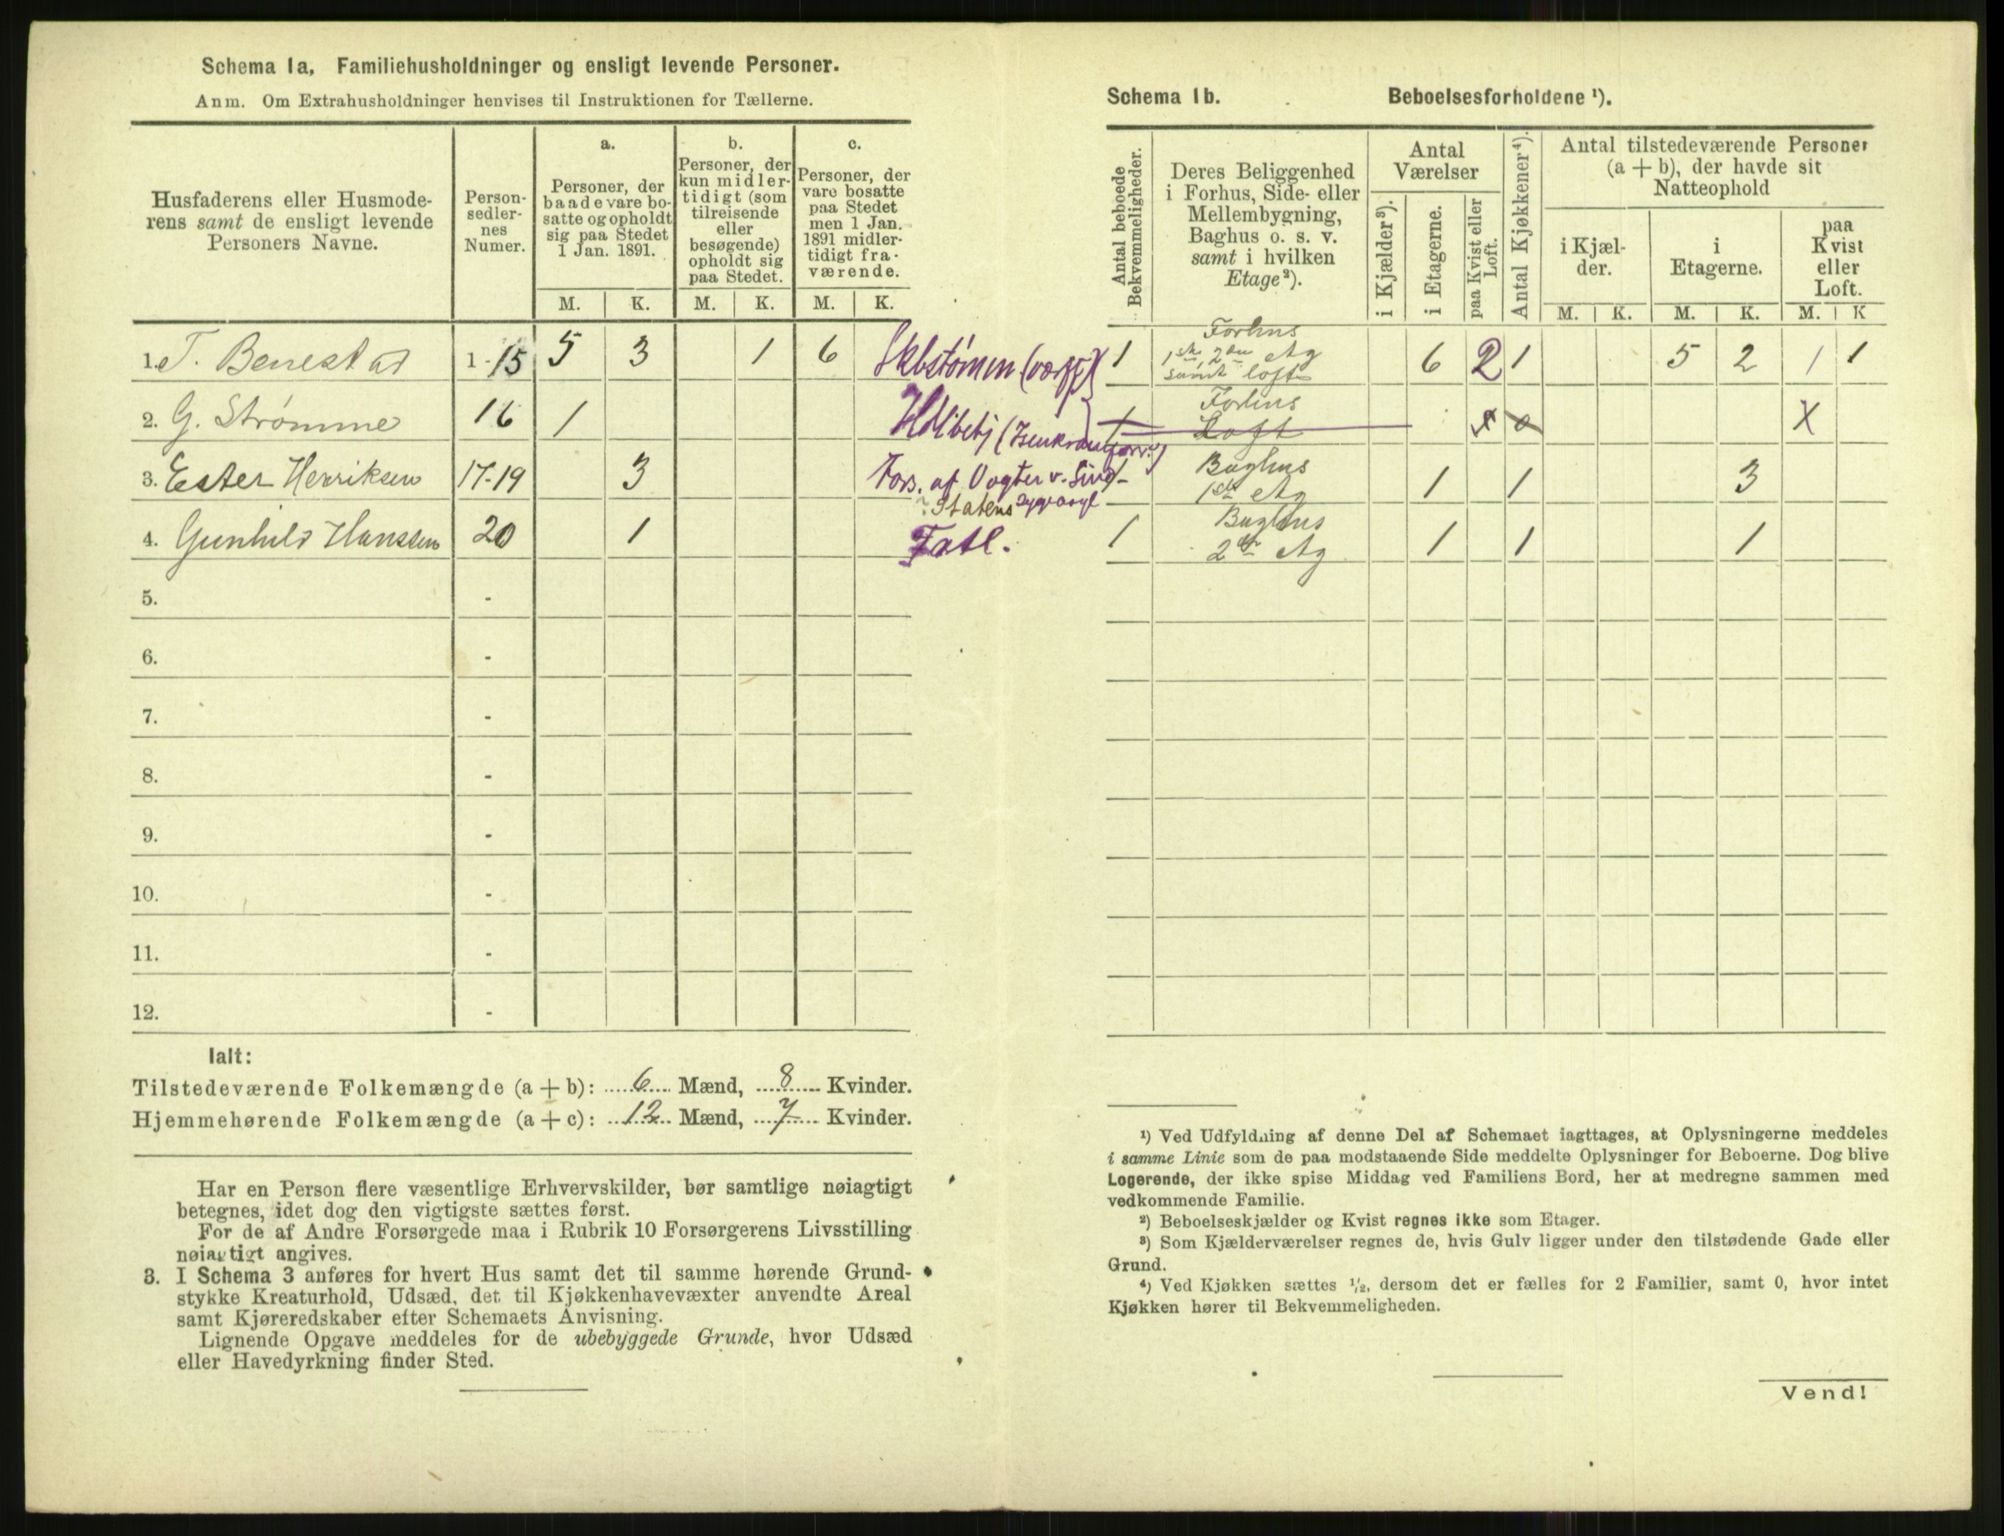 Schema 1a, Familiehusholdninger og ensligt levende Personer.
Anm. Om Extrahusholdninger henvises til Instruktionen for Tællerne.
Husfaderens eller Husmode-
rens samt de ensligt levende
Personers Navne.
Person-
sedler-
nes
Numer.
a.
Personer, der
baade vare bo-
satte og opholdt
sig paa Stedet
1 Jan. 1891.
b.
Personer, der
kun midler-
tidigt (som
tilreisende
eller
besøgende)
opholdt sig
paa Stedet.
c.
Personer, der
vare bosatte
paa Stedet
men 1 Jan.
1891 midler-
tidigt fra-
værende.
M. K. M. K. M. K.
1. T. Benestad 1-15 5 3 1 6
2. G. Strømme 16 1
3. Ester Henriksen 17-19 3 Fors. af Vogter v.
Statens
4. Gunhild Hanssen 20 1 Fatl.
5. -
6. -
7. -
8. -
9. -
10. -
11. -
12. -
Ialt:
Tilstedeværende Folkemængde (a + b): 6 Mænd, 8 Kvinder.
Hjemmehørende Folkemængde (a + c): 12 Mænd, 7 Kvinder.
Har en Person flere væsentlige Erhvervskilder, bør samtlige nøiagtigt
betegnes, idet dog den vigtigste sættes først.
For de af Andre Forsørgede maa i Rubrik 10 Forsørgerens Livsstilling
nøiagtigt angives.
3. I Schema 3 anføres for hvert Hus samt det til samme hørende Grund-
stykke Kreaturhold, Udsæd, det til Kjøkkenhavevæxter anvendte Areal
samt Kjøreredskaber efter Schemaets Anvisning.
Lignende Opgave meddeles for de ubebyggede Grunde, hvor Udsæd
eller Havedyrkning finder Sted.
Schema 1b. Beboelsesforholdene ¹).
Antal beboede
Bekvemmeligheder.
Deres Beliggenhed
i Forhus, Side- eller
Mellembygning,
Baghus o. s. v.
samt i hvilken
Etage²).
Antal
Værelser
i Kjælder³).
i Etagerne.
paa Kvist eller
Loft.
Antal Kjøkkener⁴).
Antal tilstedeværende Personer
(a + b), der havde sit
Natteophold
i Kjæl-
der.
i
Etagerne.
paa
Kvist
eller
Loft.
M. K. M. K. M. K
Forhus
1 1ste 2den Etg 6 2 1 5 2 1 1
samt loft
Forhus
1 Loft x 0 X
Baghus
1 1ste Etg 1 1 3
Baghus
1 2den Etg 1 1 1
¹) Ved Udfyldning af denne Del af Schemaet iagttages, at Oplysningerne meddeles
i samme Linie som de paa modstaaende Side meddelte Oplysninger for Beboerne. Dog blive
Logerende, der ikke spise Middag ved Familiens Bord, her at medregne sammen med
vedkommende Familie.
²) Beboelseskjælder og Kvist regnes ikke som Etager.
³) Som Kjælderværelser regnes de, hvis Gulv ligger under den tilstødende Gade eller
Grund.
⁴) Ved Kjøkken sættes ¹/₂, dersom det er fælles for 2 Familier, samt 0, hvor intet
Kjøkken hører til Bekvemmeligheden.
Vend!